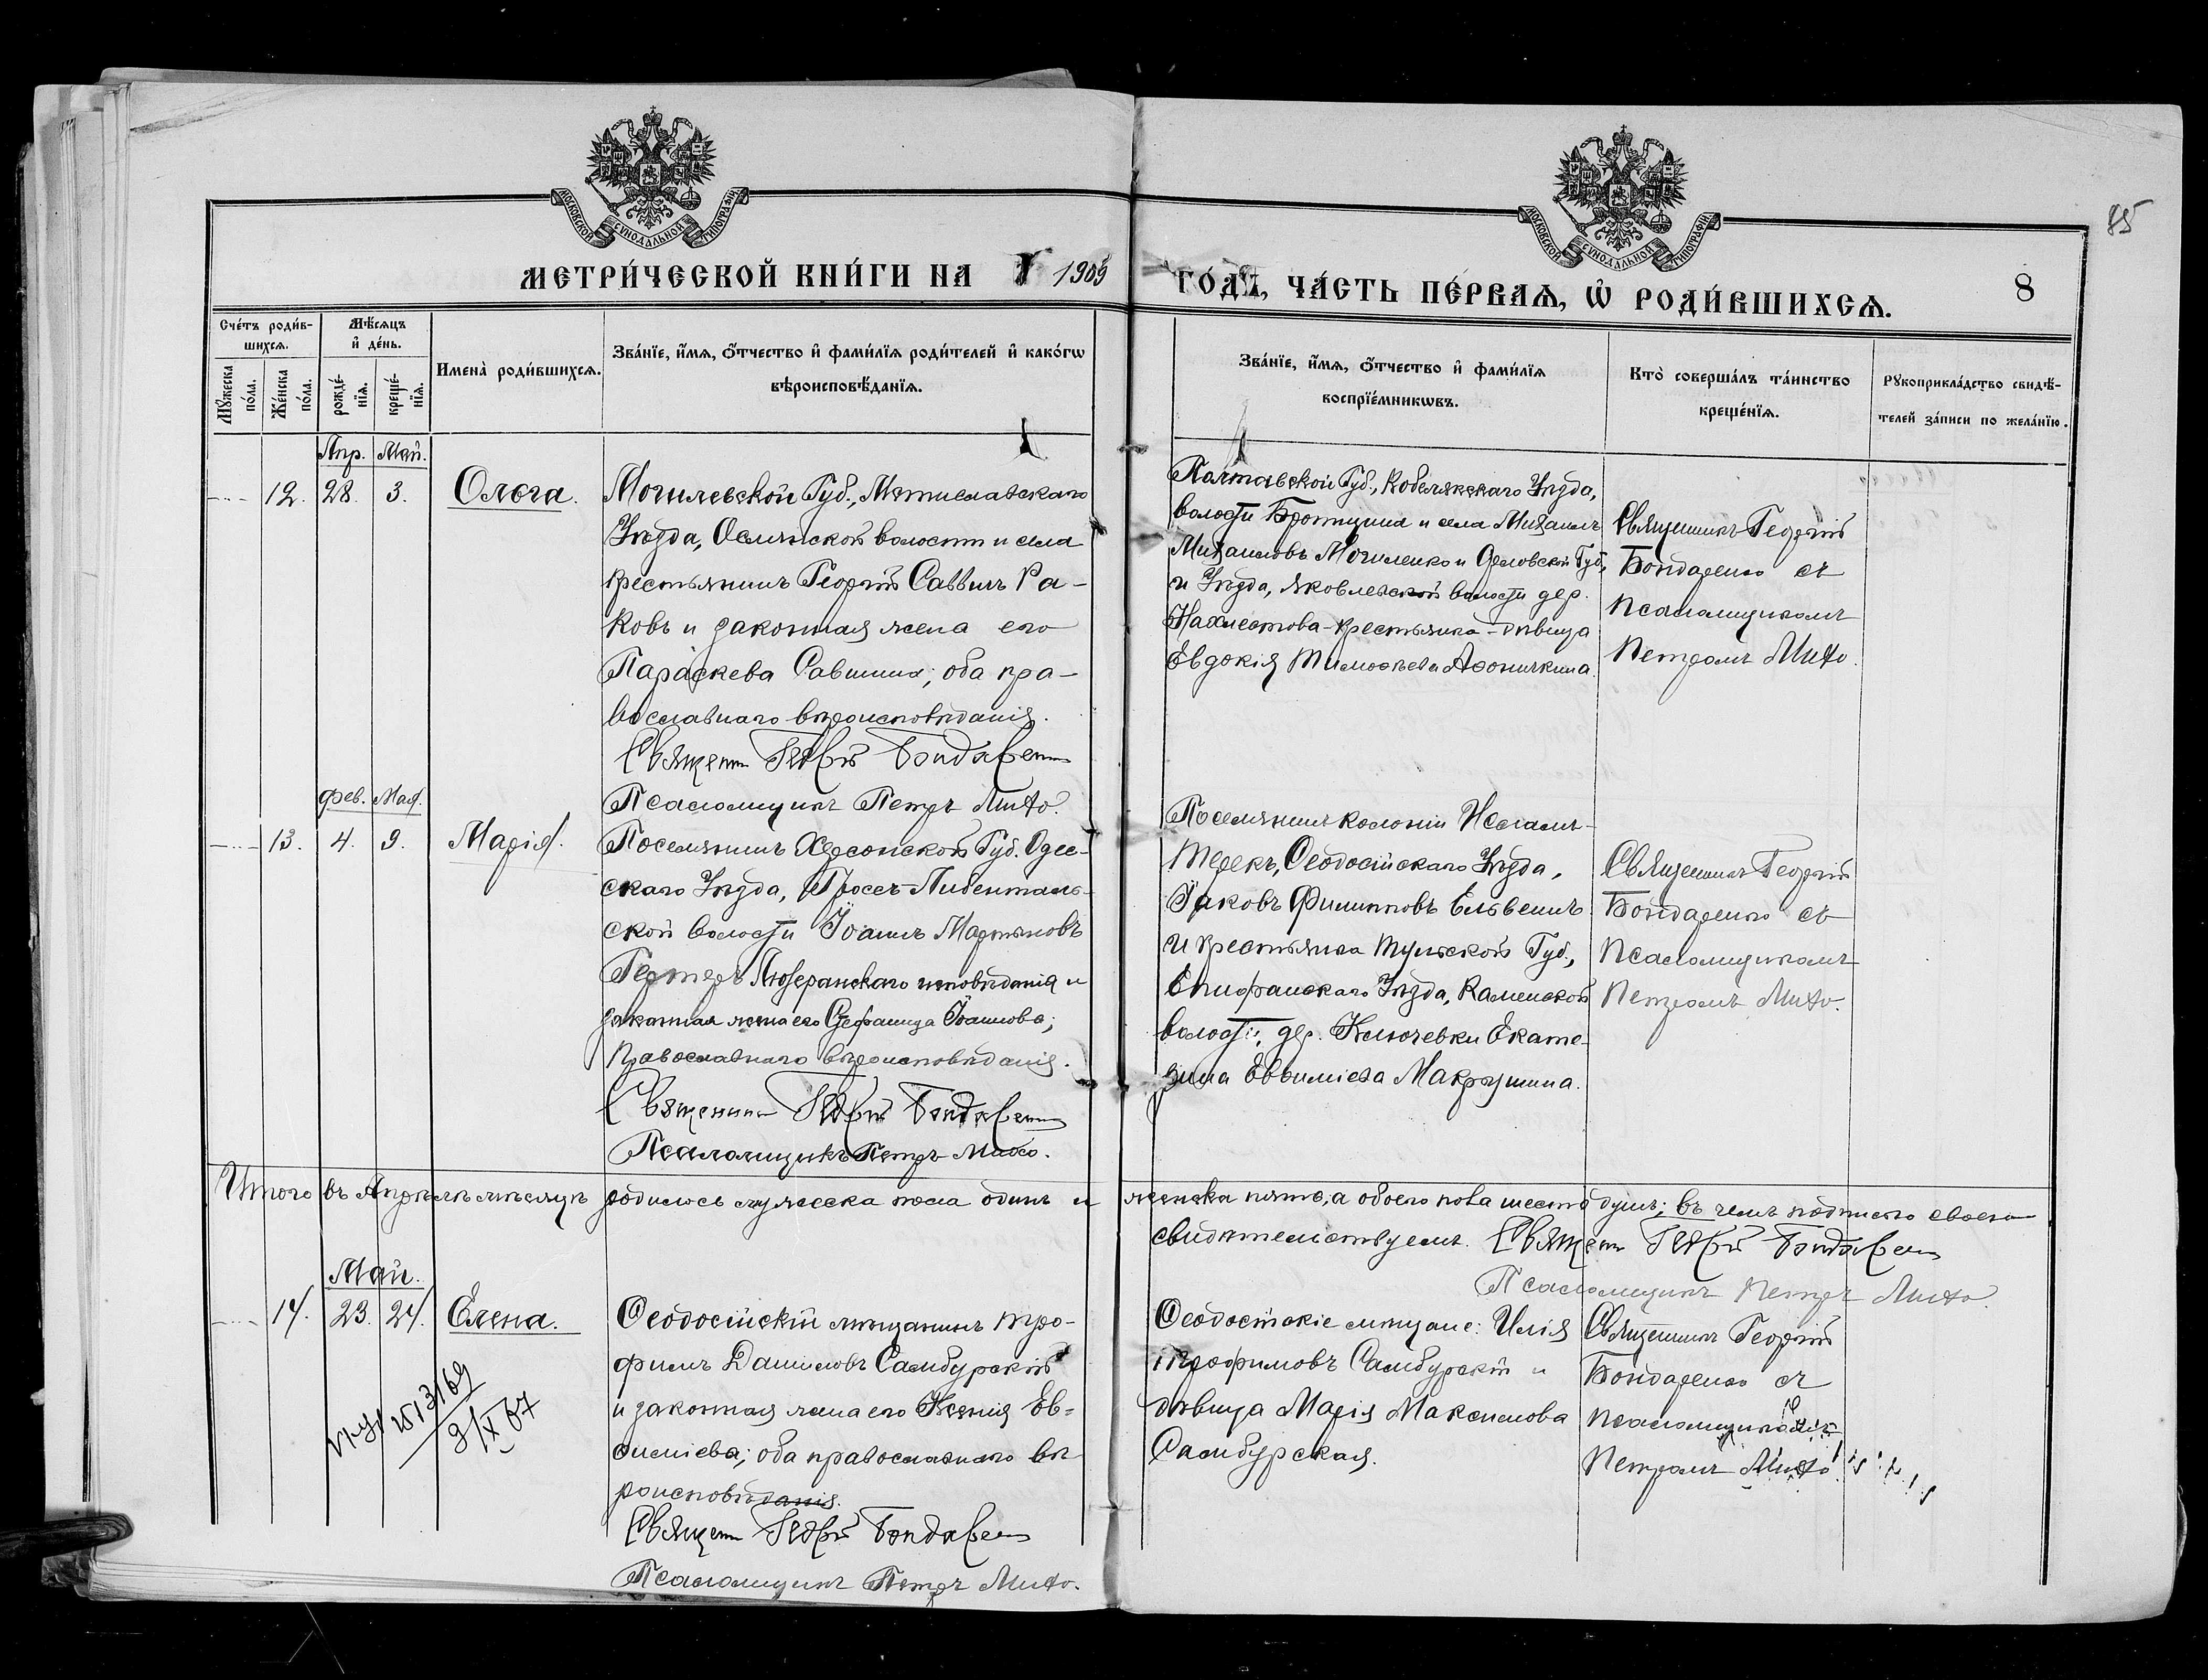 МОСКОВСКОЙ СѴНОДАЛЬНОЙ ТИПОГРАФІИ
МОСКОВСКОЙ СѴНОДАЛЬНОЙ ТИПОГРАФІИ
85
МЕТРИ́ЧЕСКОЙ КНИ́ГИ НА 1909
ГО́ДЪ, ЧА́СТЬ ПЕ́РВАѦ, Ѡ҆ РОДИ́ВШИХСѦ.
8
Сче́тъ роди́в-
шихсѧ.
Мꙋ́жеска по́ла.
Же́нска по́ла.
Мѣ́сѧцъ
и҆ де́нь.
рожде́-
нїѧ.
креще́-
нїѧ.
Имена̀ роди́вшихсѧ.
Зва́нїе, и҆́мѧ, ѻ҆́тчество и҆ фами́лїѧ роди́телей и҆ како́гѡ
вѣроисповѣ́данїѧ.
Зва́нїе, и҆́мѧ, ѻ҆́тчество и҆ фами́лїѧ
воспрїе́мникѡвъ.
Кто̀ соверша́лъ та́инство
креще́нїѧ.
Рꙋкоприкла́дство свидѣ́-
телей за́писи по жела́нїю.
Апр. Май.
12. 28. 3. Ольга.
Могилевской Губ., Мстиславскаго
Уѣзда, Ослянской волости и села
крестьянинъ Георгій Саввинъ Ра-
ковъ и законная жена его
Параскева Саввина; оба пра-
вославнаго вѣроисповѣданія.
Священ Георгій Бондарен
Псаломщикъ Петръ Михо.
Полтавской Губ., Кобелякскаго Уѣзда,
волости и села Михаилъ
Михаиловъ Могиленко и Орловской Губ.,
и Уѣзда, Яковлевской волости дер.
Нахлестова-крестьянка-дѣвица
Евдокія Тимоѳеева Аѳоничкина.
Священникъ Георгій
Бондаренко съ
псаломщикомъ
Петромъ Михо.
Фев. Май.
13. 4. 9. Марія.
Поселянинъ Херсонской Губ. Одес-
скаго Уѣзда, Гросъ-Либенталь-
ской волости Іоаннъ Мартыновъ
Гертеръ Лютеранскаго исповѣданія и
законная жена его Стефанида Іоаннова;
православнаго вѣроисповѣданія.
Священник Георгій Бондарен
Псаломщикъ Петръ Михо.
Поселянинъ колоніи
Терекъ, Ѳеодосійскаго Уѣзда,
Іаковъ Филипповъ
и крестьянка Тульской Губ.,
Епифанскаго Уѣзда, Каменской
волости, дер. Ключевки Екате-
рина Евѳиміева Макрушина.
Священникъ Георгій
Бондаренко съ
псаломщикомъ
Петромъ Михо.
Итого въ Апрѣлѣ мѣсяцѣ родилось мужеска пола одинъ и женска пять, а обоего пола шесть душъ; въ чемъ подписью своею
свидѣтельствуемъ. Священ Георгій Бондарен
Псаломщикъ Петръ Михо.
Май.
14. 23. 24. Елена.
Ѳеодосійскій мѣщанинъ Тро-
фимъ Даниловъ Самбурскій
и законная жена его Ксенія Ев-
ѳиміева; оба православнаго вѣ-
роисповѣданія.
Священ Георгій Бондарен
Псаломщикъ Петръ Михо.
Ѳеодосійскіе мѣщане: Илія
Трофимовъ Самбурскій и
дѣвица Марія Максимова
Самбурская.
Священникъ Георгій
Бондаренко съ
псаломщикомъ
Петромъ Михо.